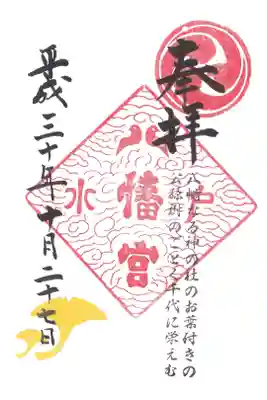 奉拝
八幡なる神の社のお葉付きの
公孫樹のごとく千代に栄えむ
八幡宮
水戸
平成三十年十月二十七日